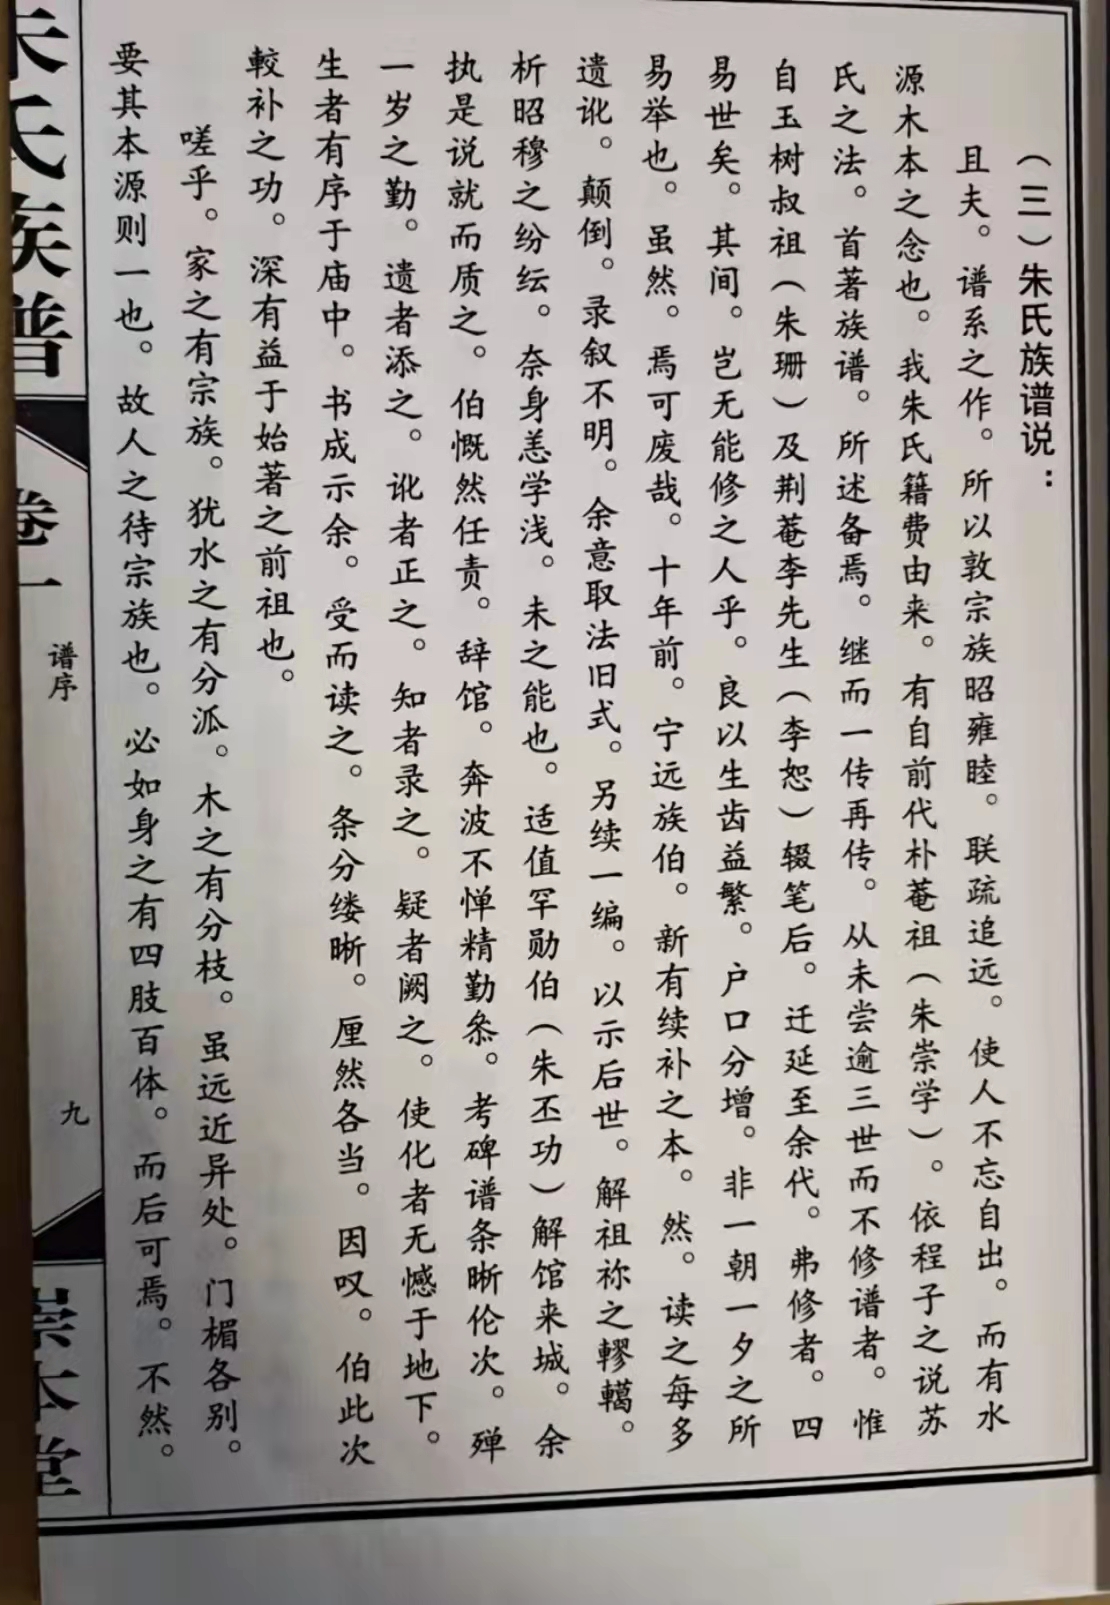 （三）朱氏族谱说：
且夫。谱系之作。所以敦宗族昭雍睦。联疏追远。使人不忘自出。而有水
源木本之念也。我朱氏籍费由来。有自前代朴菴祖（朱崇学）。依程子之说苏
氏之法。首著族谱。所述备焉。继而一传再传。从未尝逾三世而不修谱者。惟
自玉树叔祖（朱珊）及荆菴李先生（李恕）辍笔后。迁延至余代。弗修者。四
易世矣。其间。岂无能修之人乎。良以生齿益繁。户口分增。非一朝一夕之所
易举也。虽然。焉可废哉。十年前。宁远族伯。新有续补之本。然。读之每多
遗讹。颠倒。录叙不明。余意取法旧式。另续一编。以示后世。解祖祢之轇轕。
析昭穆之纷纭。奈身恙学浅。未之能也。适值罕勋伯（朱丕功）解馆来城。余
执是说就而质之。伯慨然任责。辞馆。奔波不惮精勤叅。考碑谱条晰伦次。殚
一岁之勤。遗者添之。讹者正之。知者录之。疑者阙之。使化者无憾于地下。
生者有序于庙中。书成示余。受而读之。条分缕晰。厘然各当。因叹。伯此次
較补之功。深有益于始著之前祖也。
嗟乎。家之有宗族。犹水之有分泒。木之有分枝。虽远近异处。门楣各别。
要其本源则一也。故人之待宗族也。必如身之有四肢百体。而后可焉。不然。
朱氏族谱
卷一
谱序
九
崇本堂